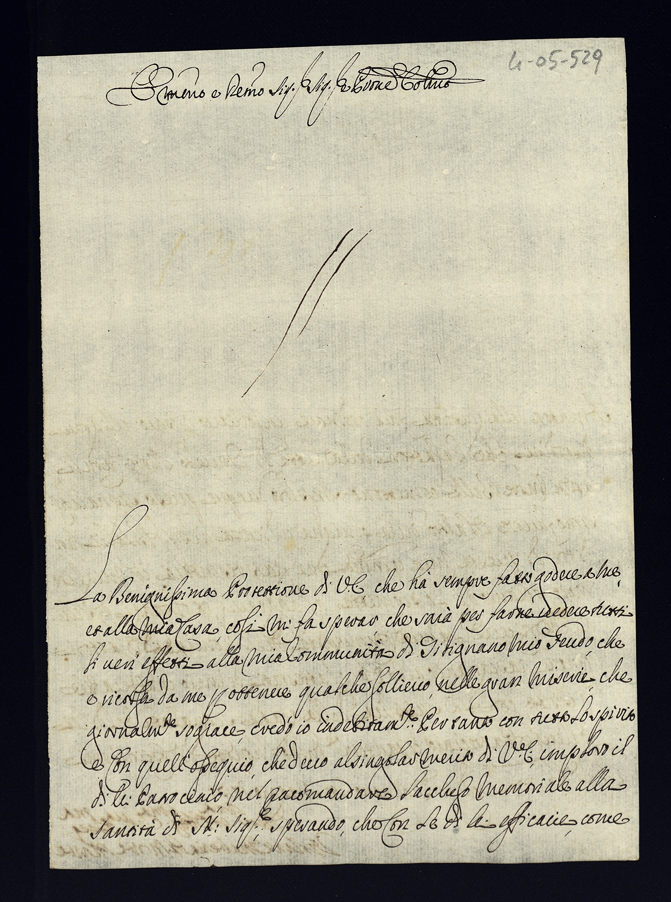 4-05-529
Em̃o e Rem̃o Sig.r Sig.r e Prone Colmo
La Benignissima Protettione di V.E. che hà sempre fatto godere a me,
et alla mia Casa, così mi fa sperar che sarà per farne vedere tutti
li veri effetti alla mia Communità di Sitignano mio Feudo, che
è ricorsa da me p ottenere qualche sollievo, nelle gran miserie, che
giornalm.te sogiace, credo io indebitam.te. Per tanto con tutto lo spirito
e con quell'ossequio, che devo al singolar merito di V.E. imploro il
di lei Patrocinio nel racomandare l'accluso Memoriale alla
Santità di N: Sig.re sperando, che con le di lei efficacie, come